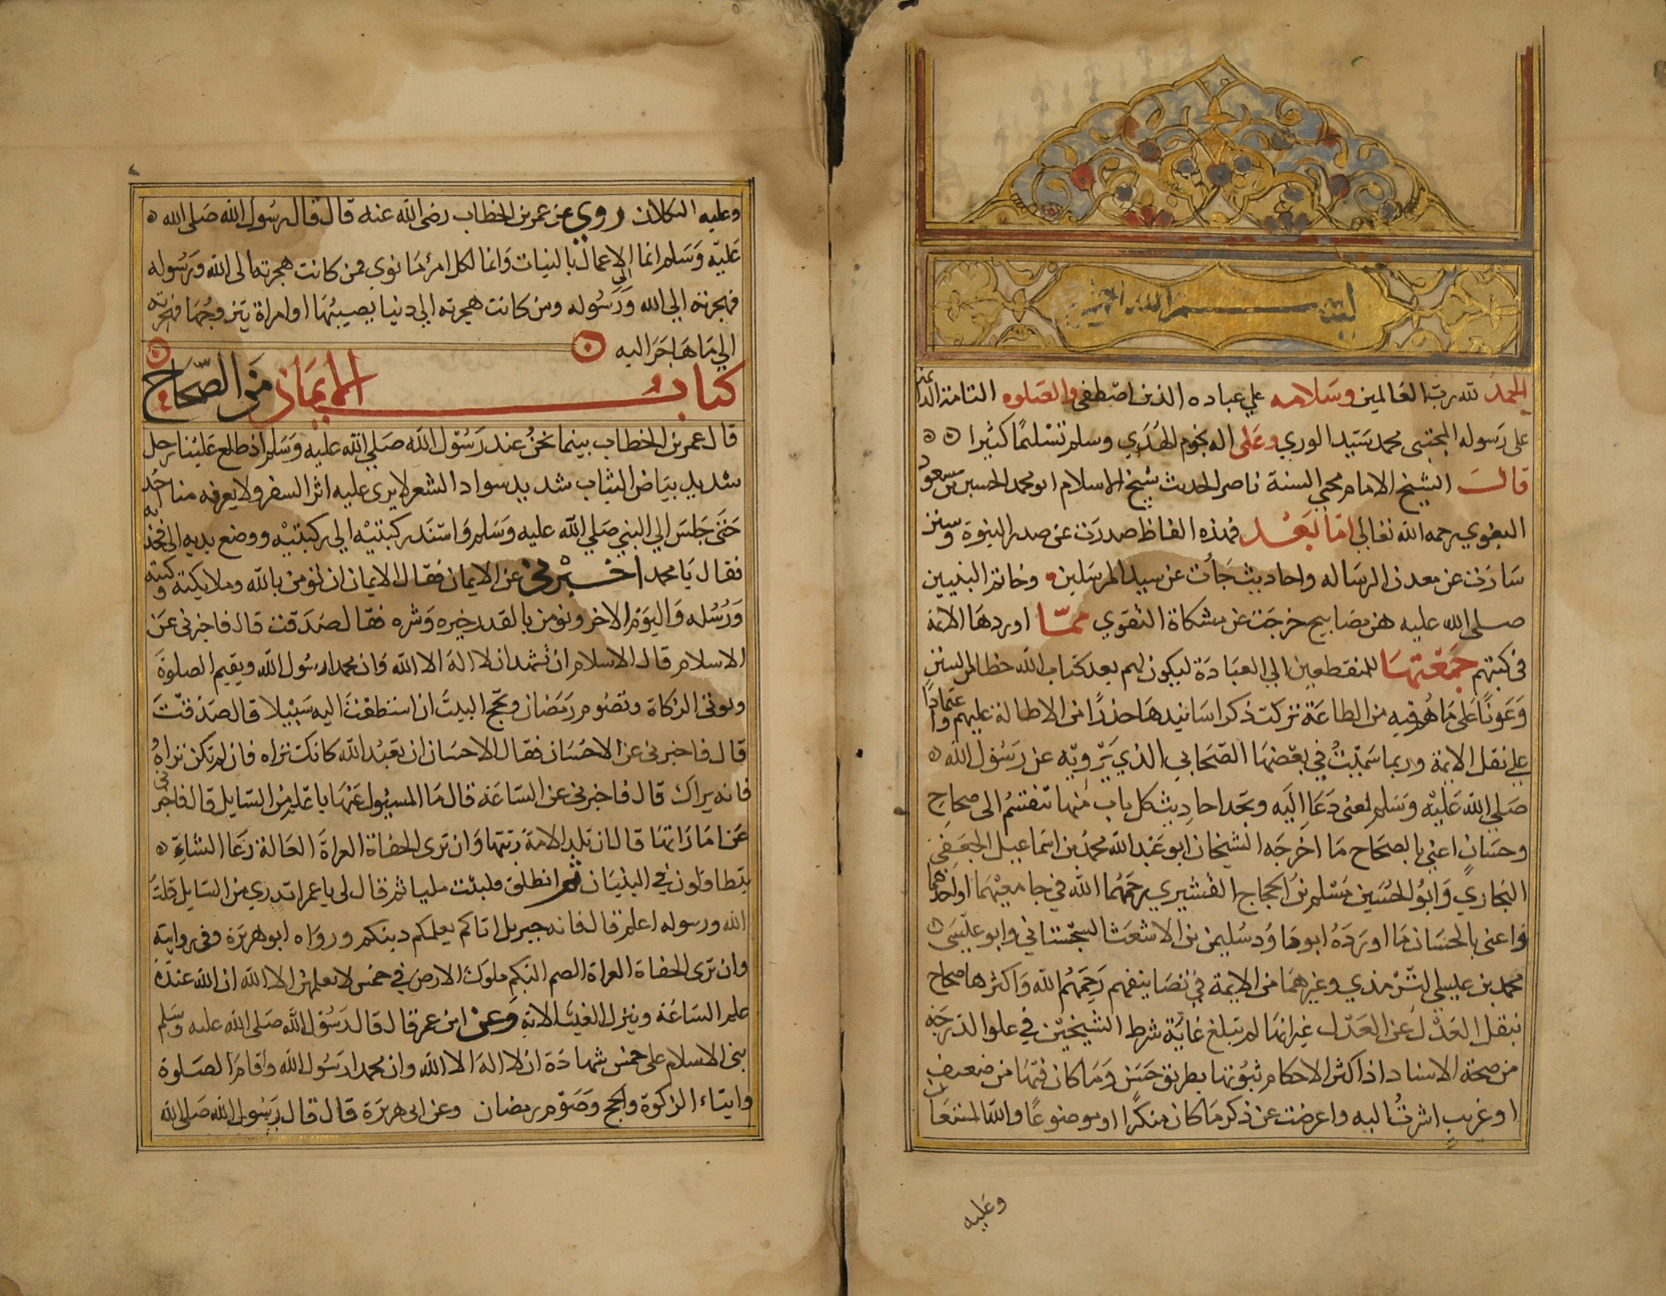 بسم الله الرحمن الرحيم
الحمد لله رب العالمين وسلامه علي عباده الذين اصطفي والصلوه التامة الدائمة
على رسوله المجتبى محمد سيد الوري وعلى اله نجوم الهدي وسلم تسليما كثيرا
قال الشيخ الامام محيي السنة ناصر الحديث شيخ الاسلام ابو محمد الحسين بن مسعود
البغوي رحمه الله تعالي اما بعد فهذه الفاظ صدرت عن صدر النبوة وسنن
سارت عن معدن الرساله واحاديث جأت عن سيد المرسلين وخاتم النبيين
صلى الله عليه هن مصابيح خرجت عن مشكاة التقوي مما اوردها الائمة
في كتبهم جمعتها للمنقطعين الي العبادة ليكون لهم بعد كتاب الله حظا من السنن
وعونا على ما هم فيه من الطاعة تركت ذكر اسانيدها حذرا من الاطالة عليهم واعتمادا
علي نقل الايمة وربما سميت في بعضها الصحابي الذي يرويه عن رسول الله
صلي الله عليه وسلم لمعنى دعا اليه وتجد احاديث كل باب منها تنقسم الى صحاح
وحسان اعني بالصحاح ما اخرجه الشيخان ابو عبد الله محمد بن اسماعيل الجعفي
البخاري وابو الحسين مسلم بن الحجاج القشيري رحمهما الله في جامعيهما او احدهما
واعني بالحسان ما اورده ابو داود سليمن بن الاشعث السجستاني وابو عيسى
محمد بن عيسي الترمذي وغيرهما من الايمة في تصانيفهم رحمهم الله واكثرها صحاح
بنقل العدل عن العدل غير انها لم تبلغ غاية شرط الشيخين في علو الدرجة
من صحة الاسناد اذ اكثر الاحكام ثبوتها بطريق حسن وما كان فيها من ضعيف
او غريب اشرت اليه واعرضت عن ذكر ما كان منكرا او موضوعا والله المستعان
وعليه
وعليه التكلان روي عن عمر بن الخطاب رضى الله عنه قال قال رسول الله صلى الله
عليه وسلم انما الاعمال بالنيات وانما لكل امرئ ما نوي فمن كانت هجرته الى الله ورسوله
فهجرته الي الله ورسوله ومن كانت هجرته الي دنيا يصيبها او امراة يتزوجها فهجرته
الي ما هاجر اليه
كتاب الايمان من الصحاح
قال عمر بن الخطاب بينما نحن عند رسول الله صلي الله عليه وسلم اذ طلع علينا رجل
شديد بياض الثياب شديد سواد الشعر لا يرى عليه اثر السفر ولا يعرفه منا احد
حتى جلس الي النبي صلي الله عليه وسلم واسند ركبتيه الي ركبتيه ووضع يديه الى فخذيه
فقال يا محمد اخبرني عن الايمان فقال الايمان ان تومن بالله وملايكته وكتبه
ورسله واليوم الاخر وتومن بالقدر خيره وشره فقال صدقت قال فاخبرني عن
الاسلام قال الاسلام ان تشهد ان لا اله الا الله وان محمدا رسول الله وتقيم الصلوة
وتوتى الزكاة وتصوم رمضان وتحج البيت ان استطعت اليه سبيلا قال صدقت
قال فاخبرني عن الاحسان فقال الاحسان ان تعبد الله كانك تراه فان لم تكن تراه
فانه يراك قال فاخبرني عن الساعة قال ما المسئول عنها باعلم من السايل قال فاخبرني
عن اماراتها قال ان تلد الامة ربتها وان ترى الحفاة العراة العالة رعا الشاء
يتطاولون في البنيان ثم انطلق فلبثت مليا ثم قال لي يا عمر اتدري من السايل قلت
الله ورسوله اعلم قال فانه جبريل اتاكم يعلمكم دينكم ورواه ابو هريرة وفى روايته
وان ترى الحفاة العراة الصم البكم ملوك الارض في خمس لا يعلمهن الا الله ان الله عنده
علم الساعة وينزل الغيث الاية وعن ابن عمر قال قال رسول الله صلى الله عليه وسلم
بنى الاسلام على خمس شهادة ان لا اله الا الله وان محمدا رسول الله واقام الصلوة
وايتاء الزكوة والحج وصوم رمضان وعن ابى هريرة قال قال رسول الله صلى الله